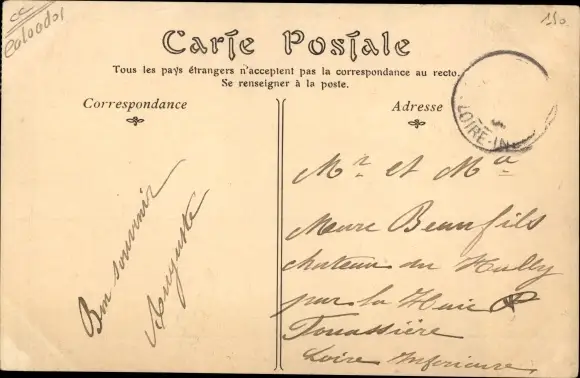 cc
Calvados
150
Carte Postale
Tous les pays étrangers n'acceptent pas la correspondance au recto.
Se renseigner à la poste.
Correspondance
Adresse
LOIRE-IN
Bon souvenir
Auguste
Mr et Ma
Beaufils
chateau du
par la Haie
Fouassière
Loire Inferieure